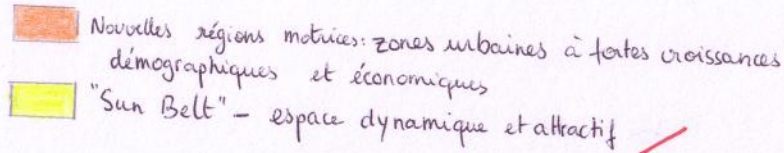 Nouvelles régions motrices: zones urbaines à fortes croissances
démographiques et économiques
"Sun Belt" - espace dynamique et attractif